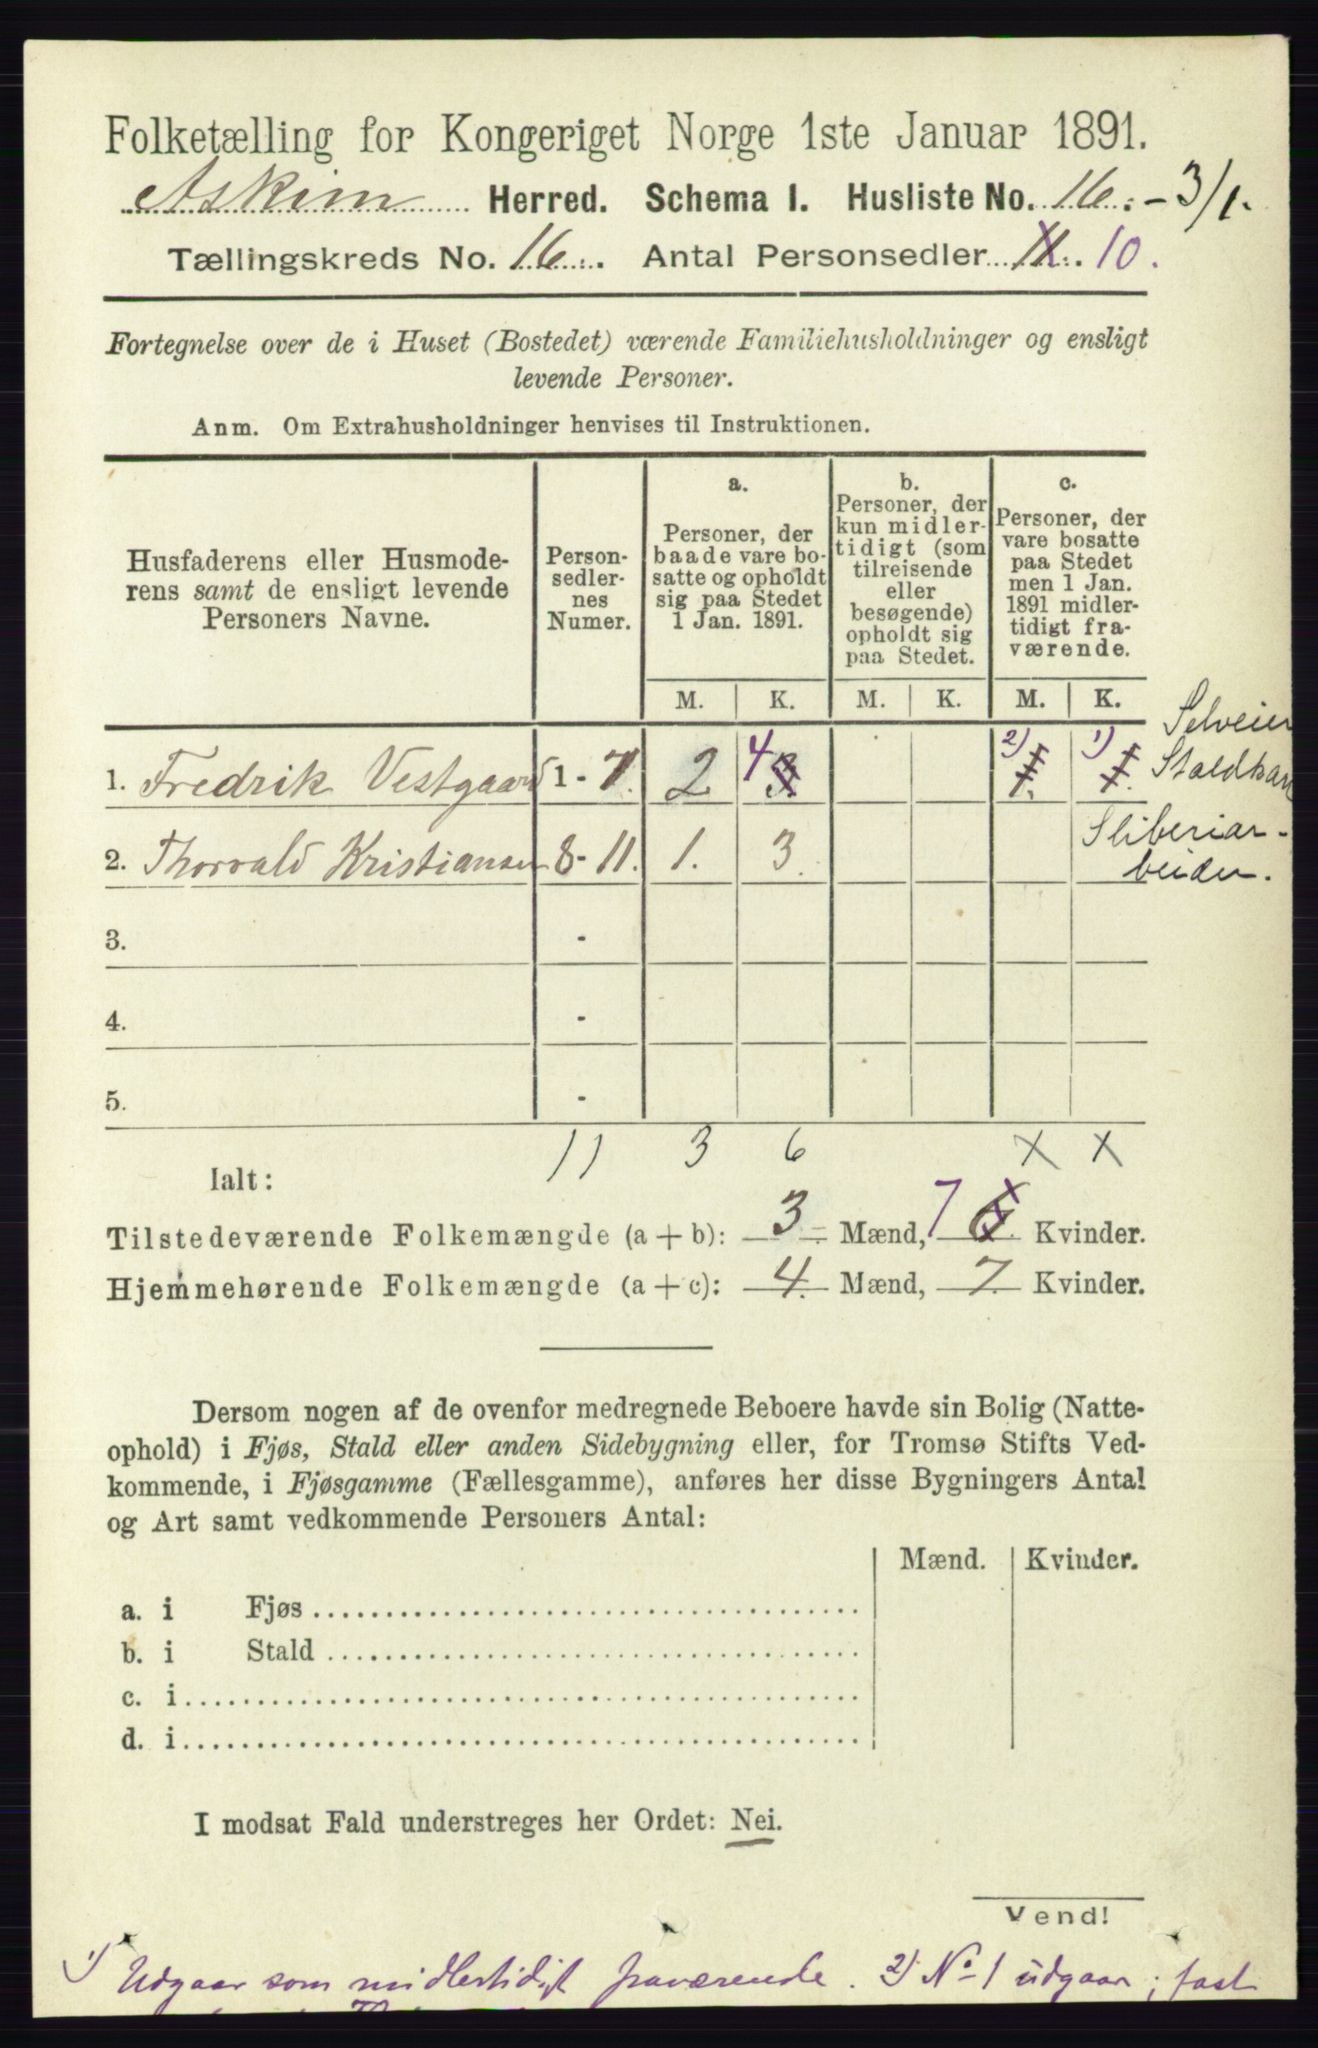 Folketælling for Kongeriget Norge 1ste Januar 1891.
Askim Herred. Schema I. Husliste No. 16. - 3/1.
Tællingskreds No. 16. Antal Personsedler 11. 10.
Fortegnelse over de i Huset (Bostedet) værende Familiehusholdninger og ensligt
levende Personer.
Anm. Om Extrahusholdninger henvises til Instruktionen.
Husfaderens eller Husmode-
rens samt de ensligt levende
Personers Navne.
Person-
sedler-
nes
Numer.
a.
Personer, der
baade vare bo-
satte og opholdt
sig paa Stedet
1 Jan. 1891.
b.
Personer, der
kun midler-
tidigt (som
tilreisende
eller
besøgende)
opholdt sig
paa Stedet.
c.
Personer, der
vare bosatte
paa Stedet
men 1 Jan.
1891 midler-
tidigt fra-
værende.
M. K. M. K. M. K.
Selveier
1. Fredrik Vestgaard 1 - 7. 2 4 3. 2) 1. 1) 1.
2. Thorvald Kristiansen 8 - 11. 1. 3. Sliberiar-
beider.
3. -
4. -
5. -
11 3 6 x x
Ialt:
Tilstedeværende Folkemængde (a + b): 3. Mænd, 7 6. Kvinder.
Hjemmehørende Folkemængde (a + c): 4. Mænd, 7. Kvinder.
Dersom nogen af de ovenfor medregnede Beboere havde sin Bolig (Natte-
ophold) i Fjøs, Stald eller anden Sidebygning eller, for Tromsø Stifts Ved-
kommende, i Fjøsgamme (Fællesgamme), anføres her disse Bygningers Antal
og Art samt vedkommende Personers Antal:
Mænd. Kvinder.
a. i Fjøs
b. i Stald
c. i
d. i
I modsat Fald understreges her Ordet: Nei.
Vend!
1) Udgaar som midlertidigt fraværende. 2) No 1 udgaar; fast